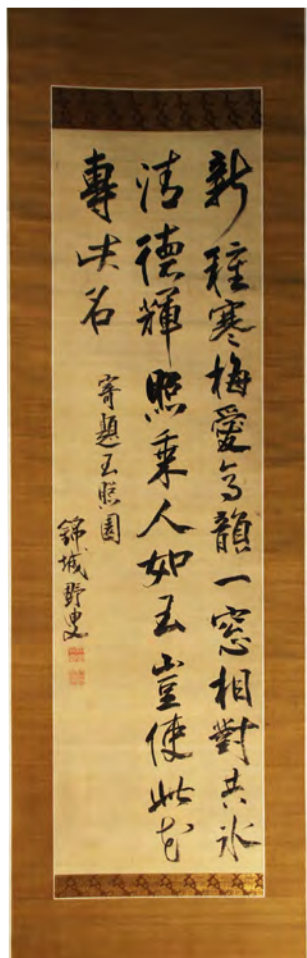 新種寒梅愛高韻一窓相對共氷
清德輝照乗人如玉豈使此花
專名
寄題玉照園
錦城野史